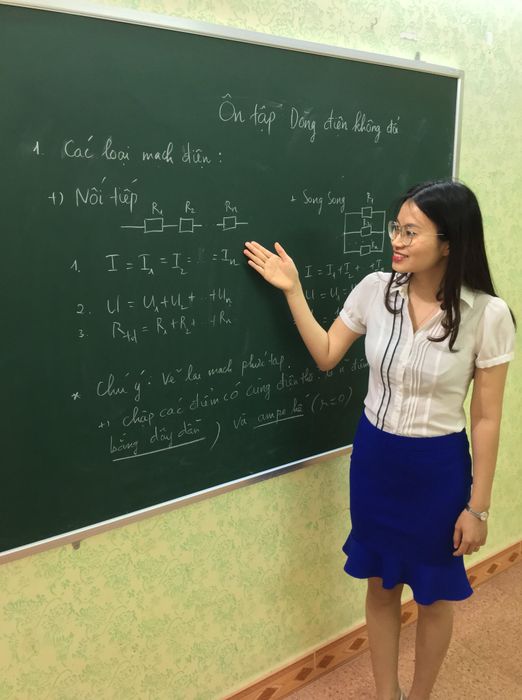 Ôn tập Dòng điện không đổi
1. Các loại mạch điện :
+) Nối tiếp
R₁ R₂ Rn
1. I = I₁ = I₂ = = In
2. U = U₁ + U₂ + ... + Un
3. Rtđ = R₁ + R₂ + ... + Rn
+ Song Song
R₁
I = I₁ + I₂ +
U = U₁ =
* Chú ý : Vẽ lại mạch phức tạp
+) chập các điểm có cùng điện thế
bằng dây dẫn ) và ampe kế (r=0)